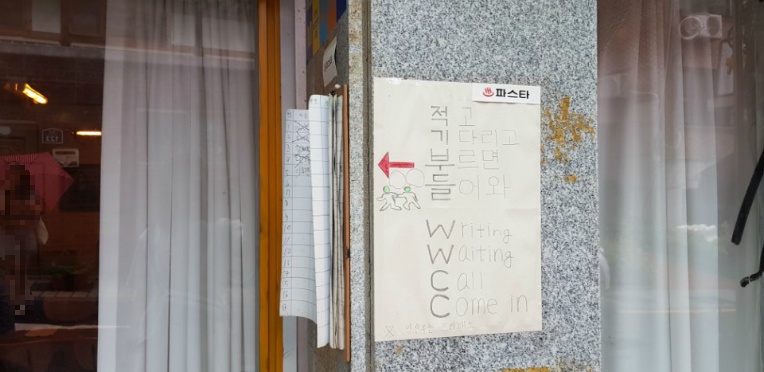 파스타
적고
기다리고
부르면
들어와
Writing
Waiting
Call
Come in